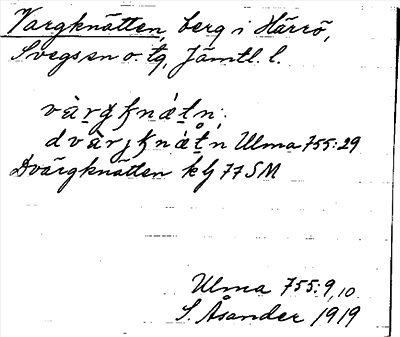 Vargknätten, berg i Härrö,
Svegs sn o. tg, Jämtl. l.
vàrgknétn.
dvàrjknétn Ulma 755:29
Dvärgknätten kbl 77 SM
Ulma 755:9,10
S. Åsander 1919